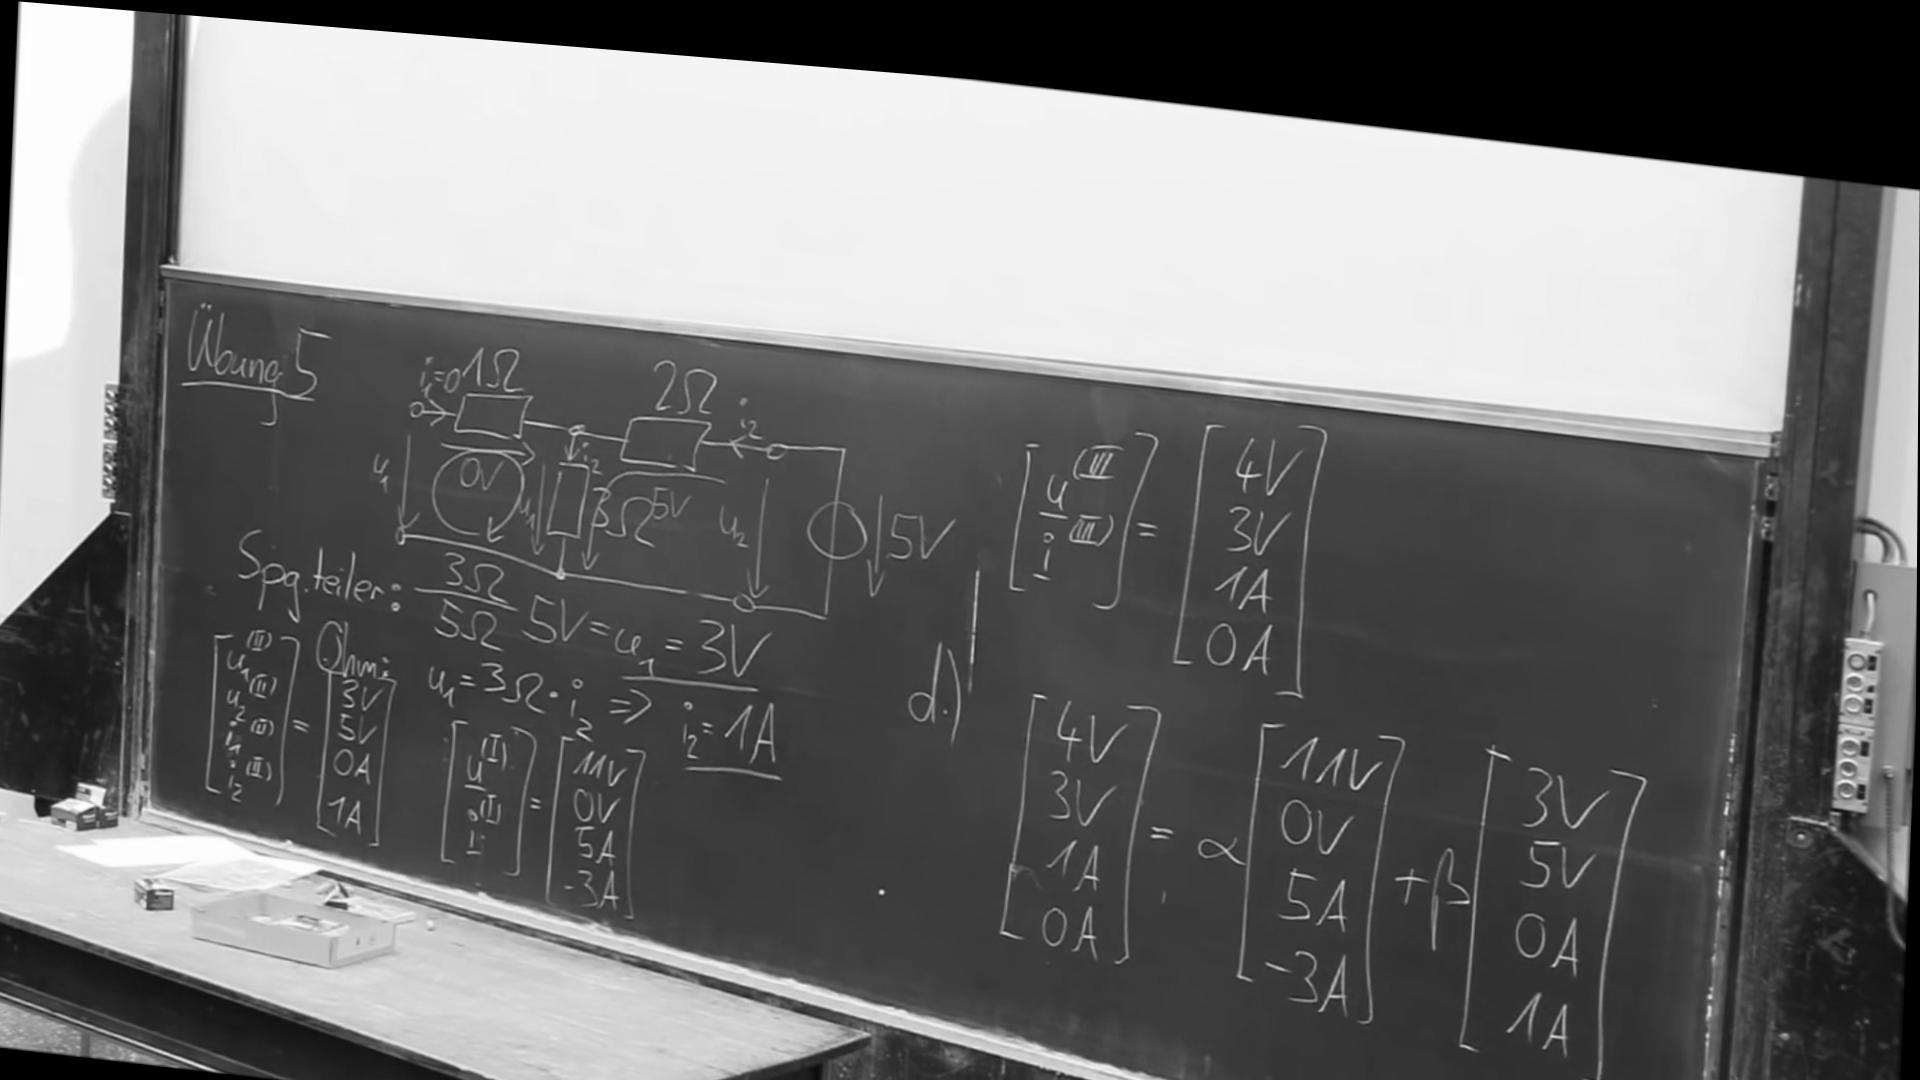 Übung 5
i₁=0 1Ω 2Ω i₂
u₁ 0V u₁ i₂ 3Ω 5V u₂ 5V
Spg.teiler: 3Ω/5Ω 5V = u₁ = 3V
Ohm: u₁ = 3Ω · i₂ ⇒ i₂ = 1A
[u₁^(II) u₂^(II) i₁^(II) i₂^(II)] = [3V 5V 0A 1A]
[u^(I) i^(I)] = [11V 0V 5A -3A]
[u^(III) i^(III)] = [4V 3V 1A 0A]
d.)
[4V 3V 1A 0A] = α [11V 0V 5A -3A] + β [3V 5V 0A 1A]